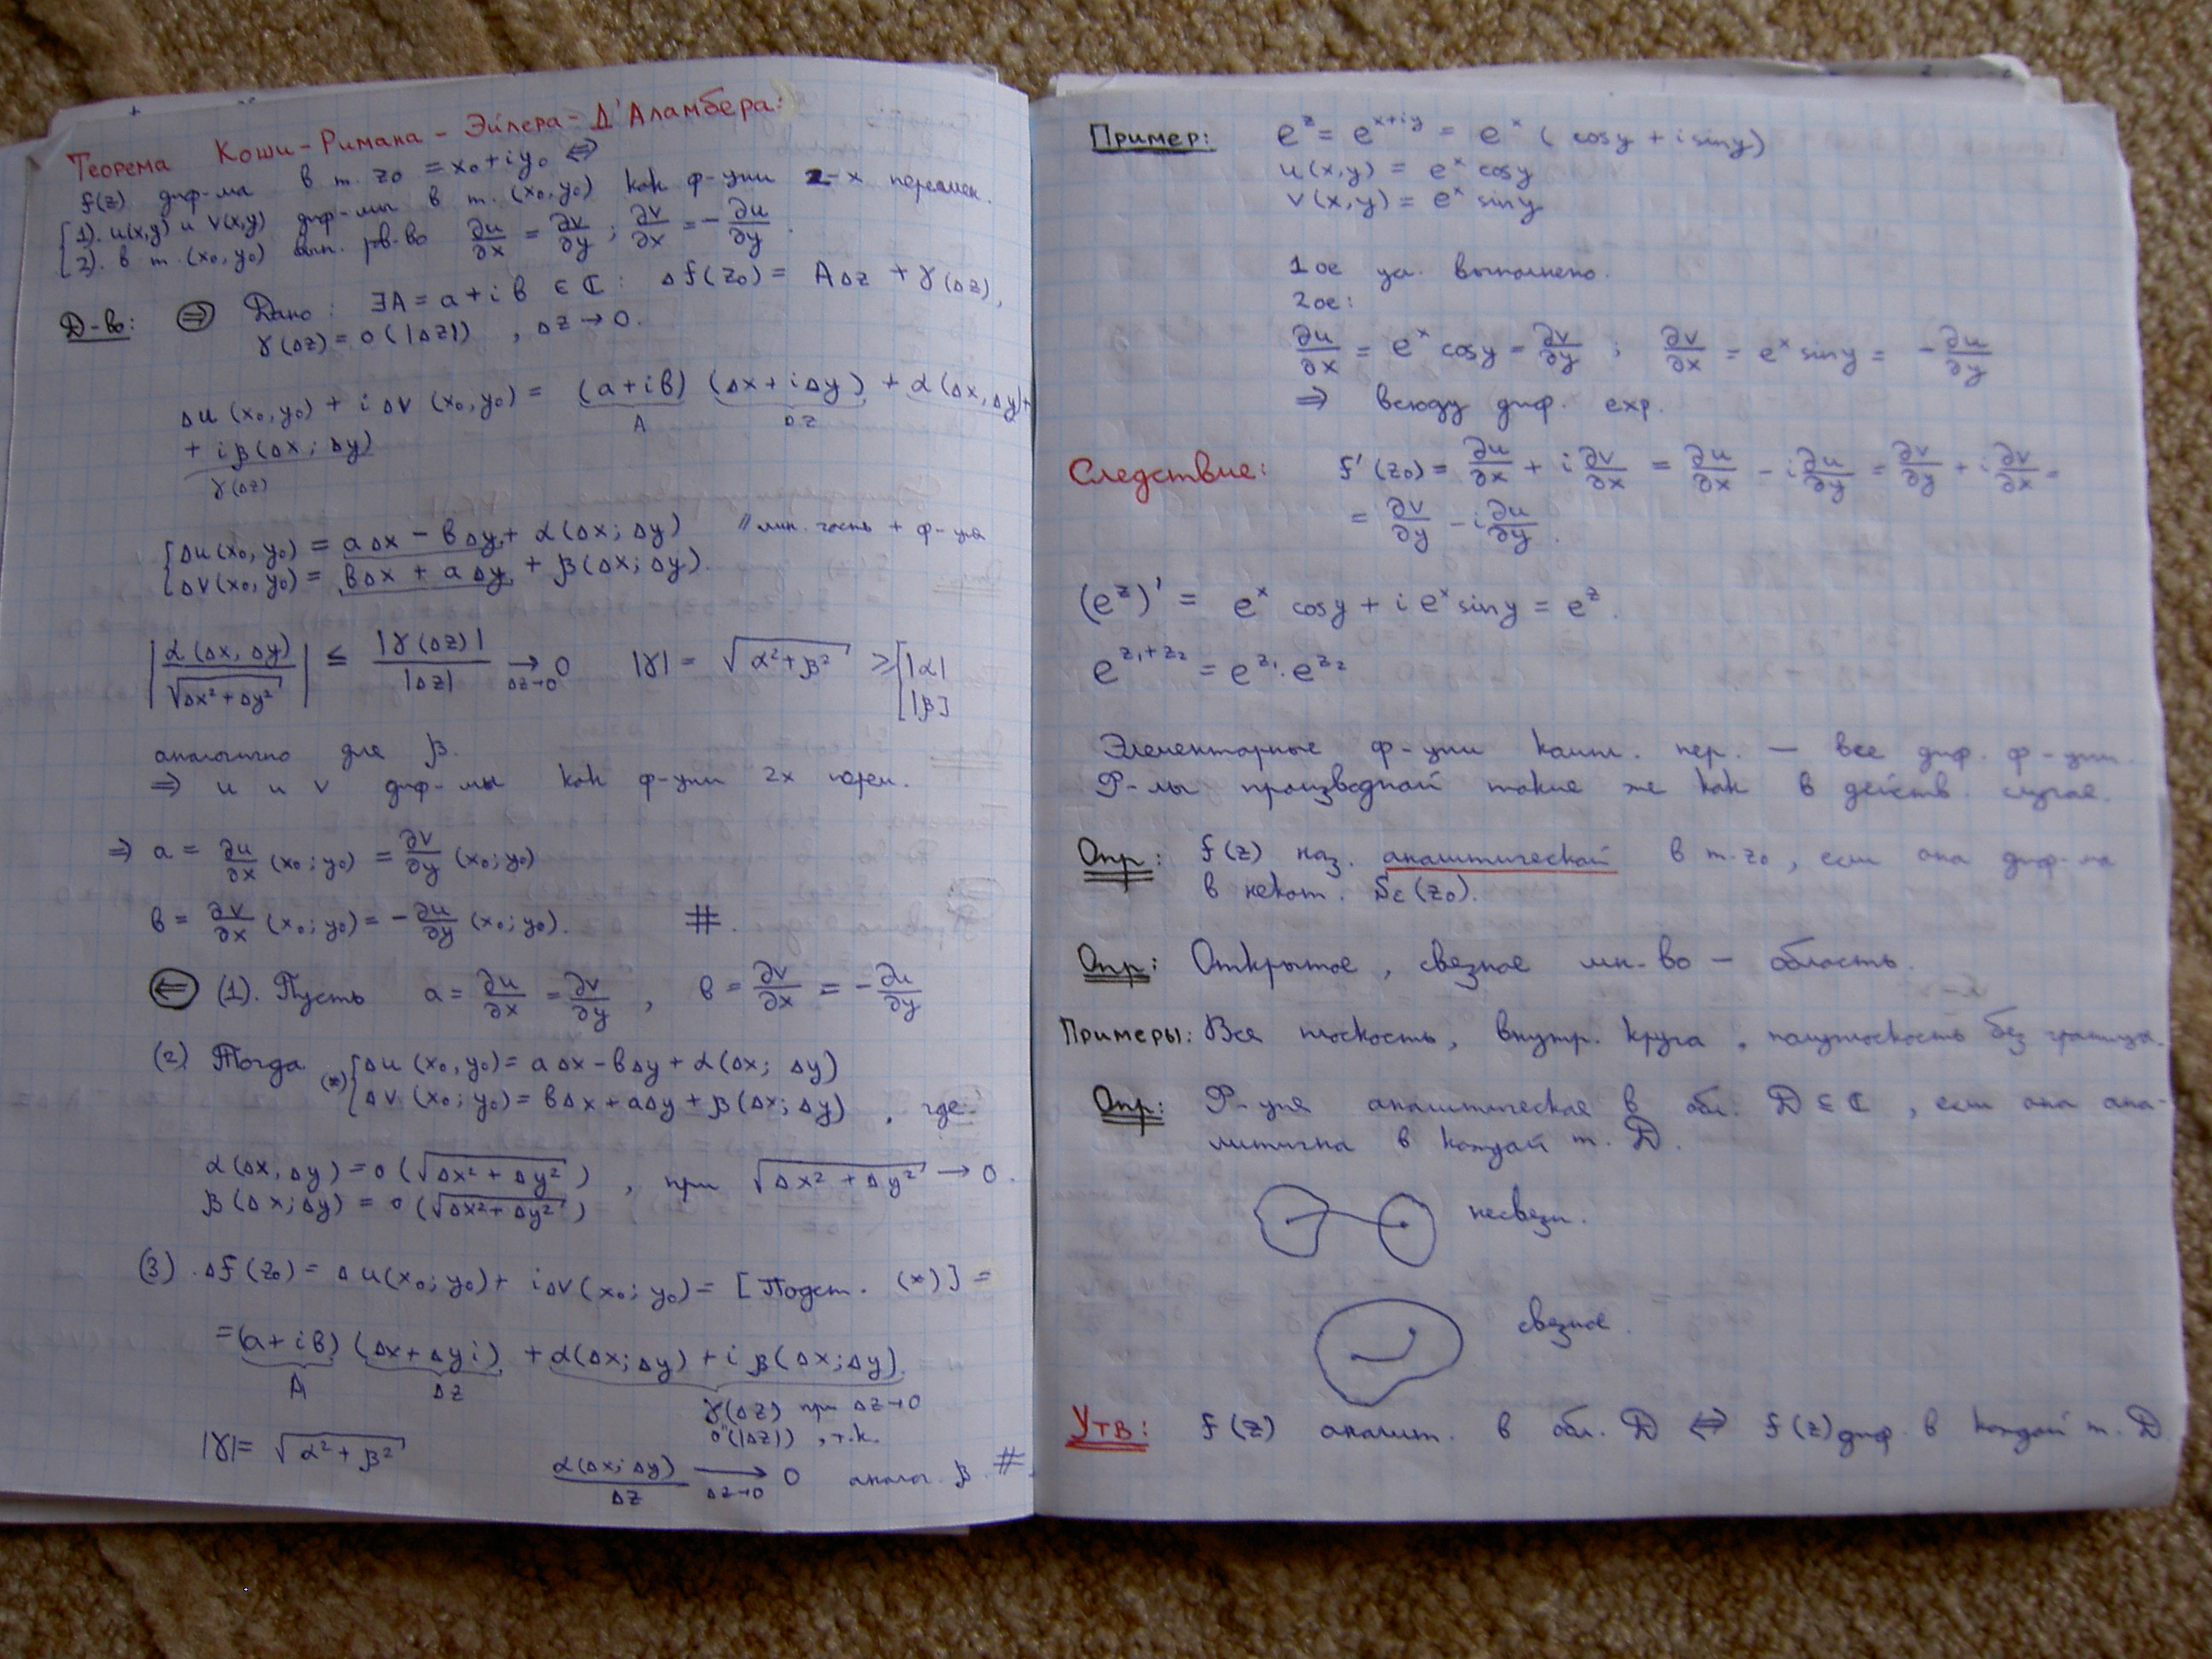 Теорема Коши-Римана-Эйлера-Д'Аламбера:
f(z) диф-ма в т. z₀ = x₀+iy₀ ⇔
1). u(x,y) и v(x,y) диф-мы в т. (x₀,y₀) как ф-ции 2-х перемен.
2). в т. (x₀,y₀) вып. рв-во ∂u/∂x = ∂v/∂y ; ∂v/∂x = -∂u/∂y.
Д-во: ⇒ Дано: ∃A = a+iв ∈ ℂ: Δf(z₀) = AΔz + γ(Δz),
γ(Δz) = o(|Δz|), Δz→0.
Δu(x₀,y₀) + iΔv(x₀,y₀) = (a+iв)(Δx+iΔy) + α(Δx,Δy)+
A Δz
+ iβ(Δx;Δy)
γ(Δz)
{Δu(x₀,y₀) = aΔx - вΔy + α(Δx;Δy) // лин. часть + ф-ция
{Δv(x₀,y₀) = вΔx + aΔy + β(Δx;Δy).
|α(Δx,Δy)/√(Δx²+Δy²)| ≤ |γ(Δz)|/|Δz| →(Δz→0) 0 |γ| = √(α²+β²) ≥ [|α| |β|
аналогично для β.
⇒ u и v диф-мы как ф-ции 2х перем.
⇒ a = ∂u/∂x (x₀;y₀) = ∂v/∂y (x₀;y₀)
в = ∂v/∂x (x₀;y₀) = -∂u/∂y (x₀;y₀). #.
⇐ (1). Пусть a = ∂u/∂x = ∂v/∂y , в = ∂v/∂x = -∂u/∂y
(2) Тогда (*) {Δu(x₀,y₀) = aΔx - вΔy + α(Δx; Δy)
{Δv(x₀;y₀) = вΔx + aΔy + β(Δx;Δy) , где:
α(Δx,Δy) = o(√(Δx²+Δy²)) , при √(Δx²+Δy²) → 0.
β(Δx;Δy) = o(√(Δx²+Δy²))
(3). Δf(z₀) = Δu(x₀;y₀) + iΔv(x₀;y₀) = [Подст. (*)] =
= (a+iв)(Δx+Δyi) + α(Δx;Δy) + iβ(Δx;Δy).
A Δz
γ(Δz) при Δz→0
o(|Δz|) , т.к.
|γ| = √(α²+β²)
α(Δx;Δy)/Δz →(Δz→0) 0 аналог. β. #.
Пример: e^z = e^(x+iy) = e^x (cosy + isiny)
u(x,y) = e^x cosy
v(x,y) = e^x siny
1ое ус. выполнено.
2ое:
∂u/∂x = e^x cosy = ∂v/∂y ; ∂v/∂x = e^x siny = -∂u/∂y
⇒ всюду диф. exp.
Следствие: f'(z₀) = ∂u/∂x + i∂v/∂x = ∂u/∂x - i∂u/∂y = ∂v/∂y + i∂v/∂x =
= ∂v/∂y - i∂u/∂y.
(e^z)' = e^x cosy + ie^x siny = e^z.
e^(z₁+z₂) = e^z₁ · e^z₂
Элементарные ф-ции компл. пер. — все диф. ф-ции.
Ф-лы производной такие же как в действ. случае.
Опр: f(z) наз. аналитической в т. z₀, если она диф-ма
в некот. Sε(z₀).
Опр: Открытое, связное мн-во - область.
Примеры: Вся плоскость, внутр. круга, полуплоскость без границы.
Опр: Ф-ция аналитическая в обл. D ⊆ ℂ, если она ана-
литична в каждой т. D.
несвязн.
связное.
Утв: f(z) аналит. в обл. D ⇔ f(z) диф. в каждой т. D